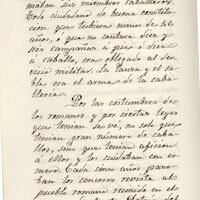 maban sus miembros caballeros.
Todo ciudadano de buena constitucion
que tubiera menos de 46
años, o que no contara diez y
seis campañas a pie o diez
a caballo, era obligado al ser
vicio militar. La lanza y el sa
ble era el arma de la caba
lleria.
Por las costumbres de
los romanos y por ciertas leyes
que tenian se ve, no solo que
tenian gran número de caba
llos, sino que tenian aficion
a ellos y los cuidaban con es
mero. Cada cinco años pasa
ban los censores revista al
pueblo romano reunido en el